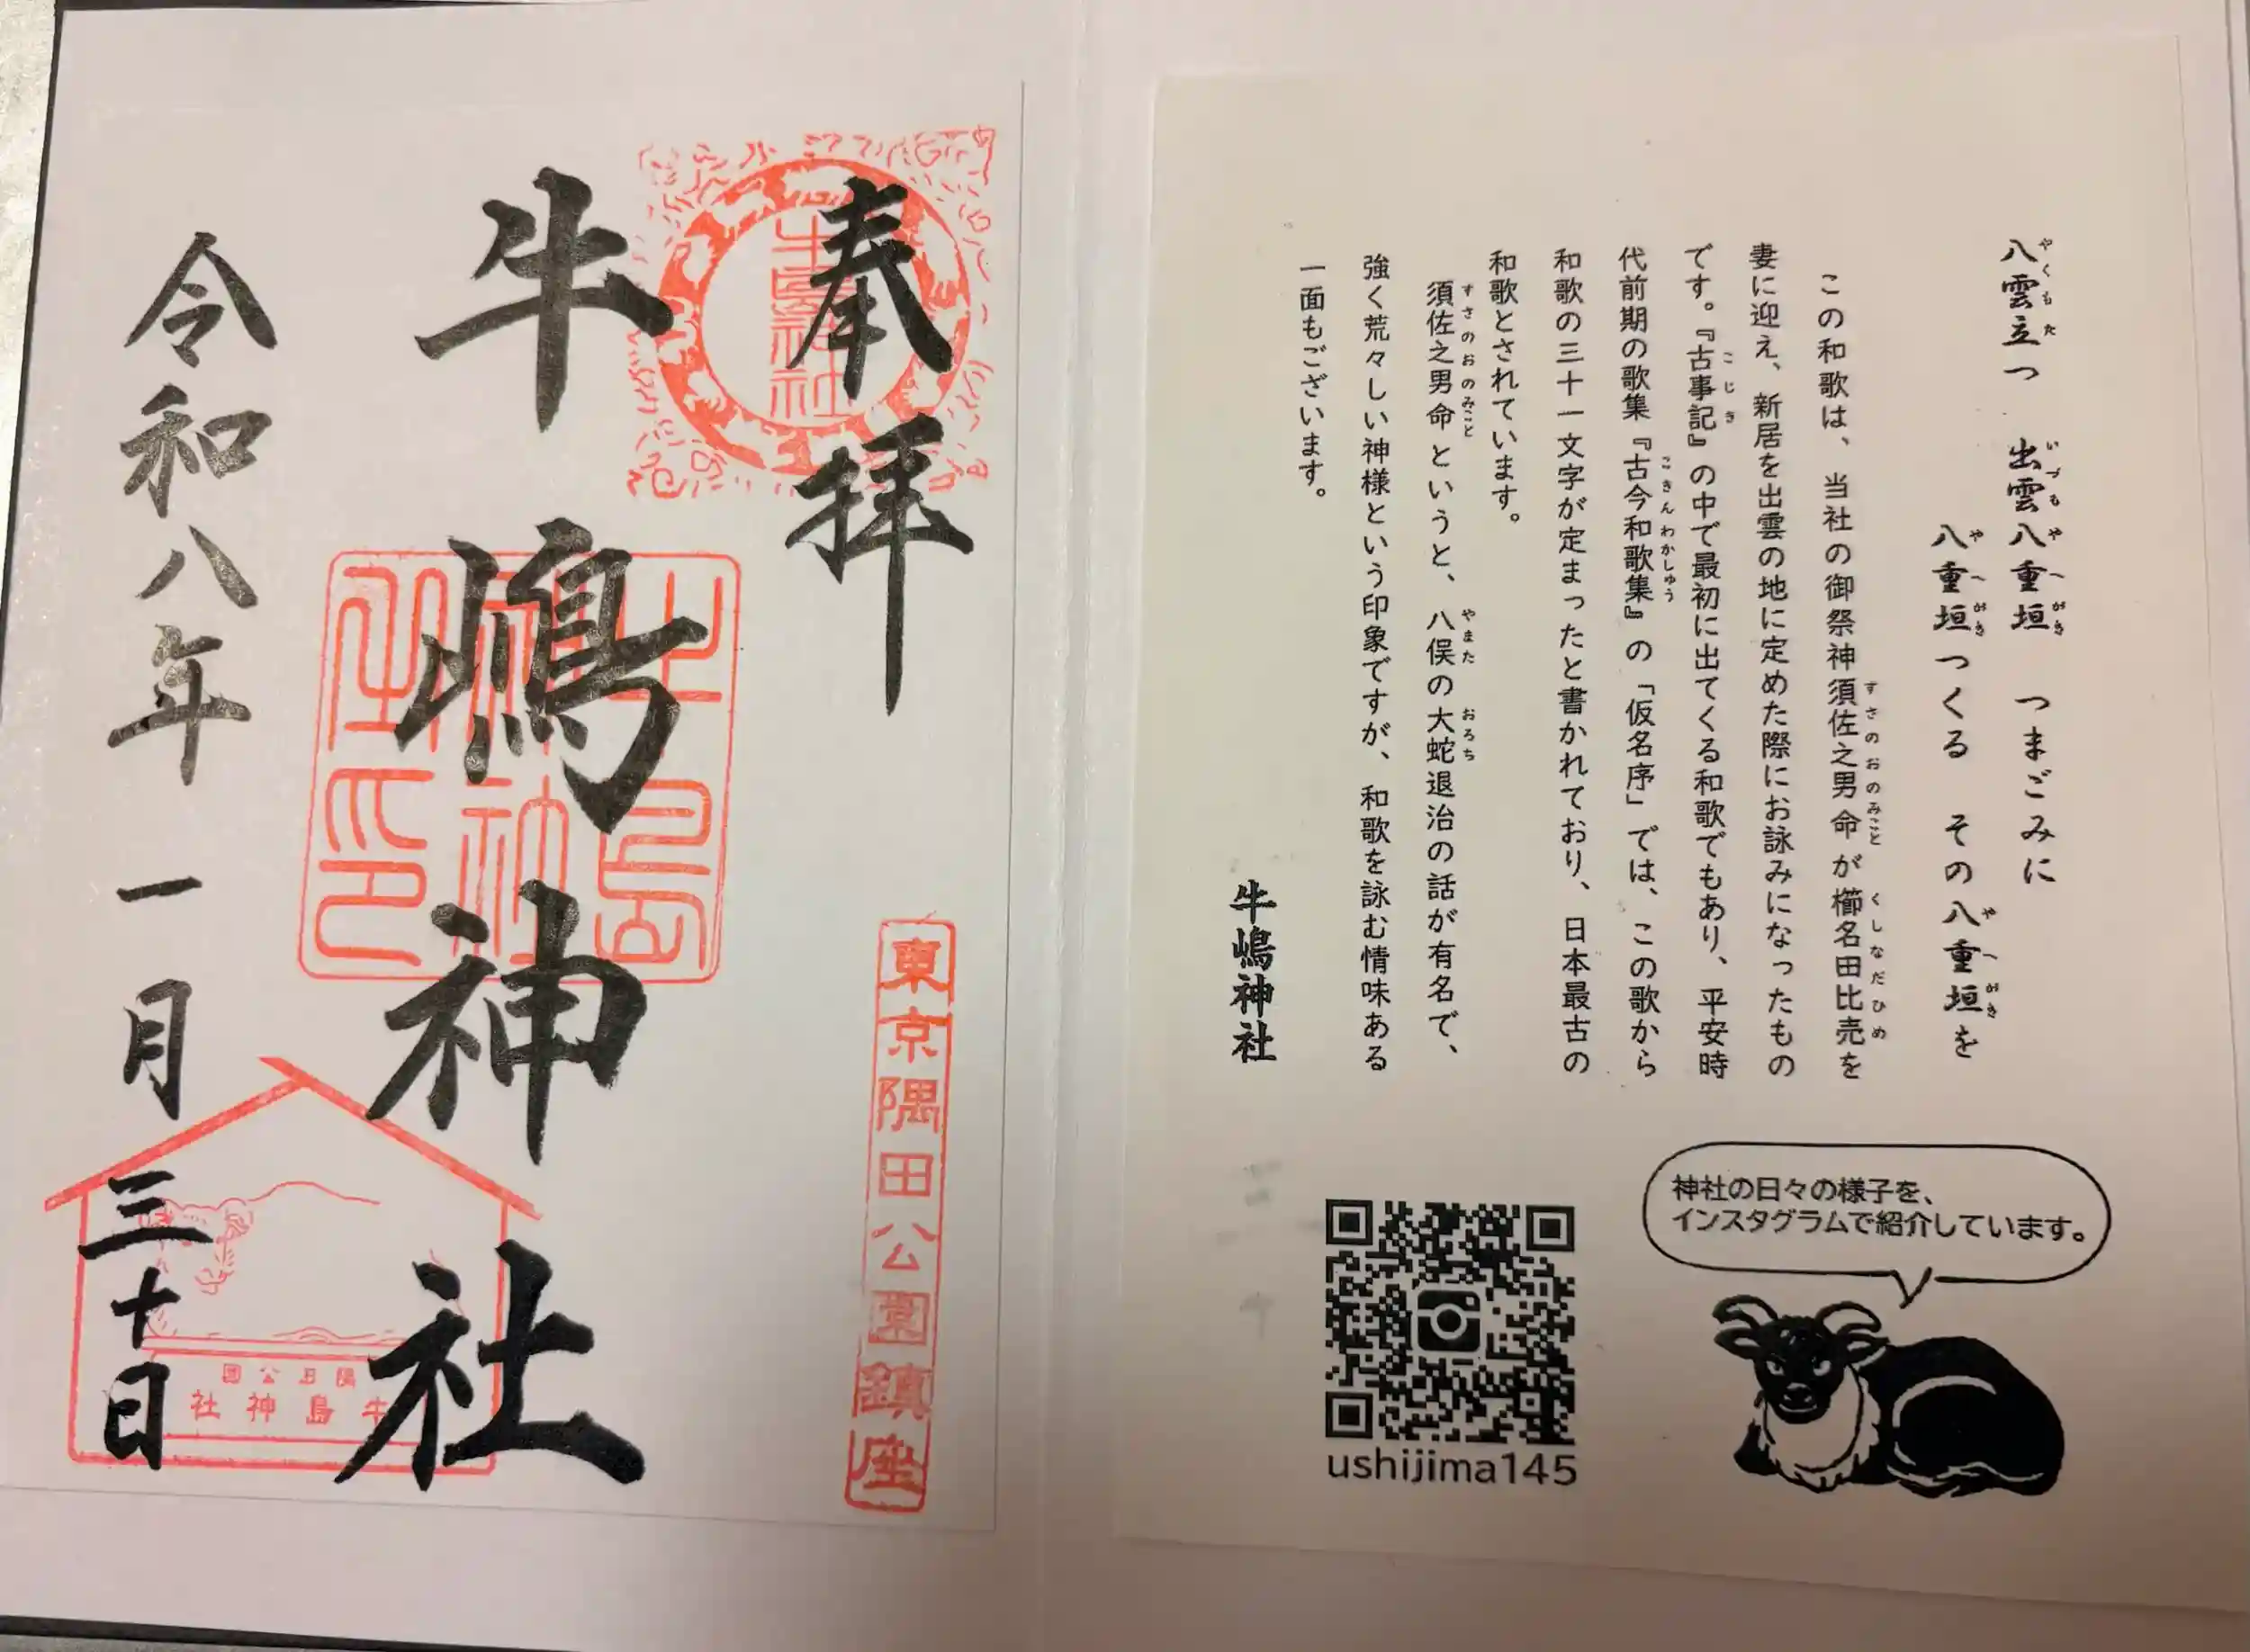 奉拝
牛嶋神社
令和八年一月三十日
牛島神社
牛島神社之印
東京隅田公園鎮座
隅田公園
牛島神社
八雲立つ 出雲八重垣 つまごみに
やくもた いづもやへがき
八重垣つくる その八重垣を
やへがき やへがき
この和歌は、当社の御祭神須佐之男命が櫛名田比売を
すさのおのみこと くしなだひめ
妻に迎え、新居を出雲の地に定めた際にお詠みになったもの
です。『古事記』の中で最初に出てくる和歌でもあり、平安時
こじき
代前期の歌集『古今和歌集』の「仮名序」では、この歌から
こきんわかしゅう
和歌の三十一文字が定まったと書かれており、日本最古の
和歌とされています。
須佐之男命というと、八俣の大蛇退治の話が有名で、
すさのおのみこと やまた おろち
強く荒々しい神様という印象ですが、和歌を詠む情味ある
一面もございます。
牛嶋神社
神社の日々の様子を、
インスタグラムで紹介しています。
ushijima145